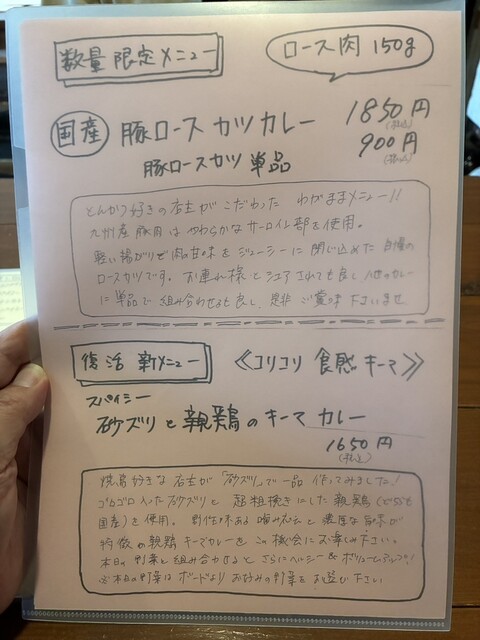 数量限定メニュー
ロース肉 150g
国産 豚ロース カツカレー 1850円
(税込)
豚ロースカツ 単品 900円
(税込)
とんかつ好きの店主がこだわった わがままメニュー!!
九州産豚肉はやわらかなサーロイン部を使用。
軽い揚がりで肉の甘味をジューシーに閉じ込めた自慢の
ロースカツです。お連れ様とシェアされても良し、他のカレー
に単品で組み合わせるも良し、是非ご賞味下さいませ
復活 新メニュー
《コリコリ 食感 キーマ》
スパイシー
砂ズリと親鶏のキーマ カレー
1650円
(税込)
焼鳥好きな店主が「砂ズリ」で一品 作ってみました!
ゴロゴロ入った砂ズリと 超粗挽きにした親鶏(どちらも
国産)を使用。野性味ある噛み応えと濃厚な旨味が
特徴の親鶏キーマカレーをこの機会にお楽しみ下さい。
本日の野菜と組み合わせると さらにヘルシー&ボリュームアップ!!
※本日の野菜はボードより お好みの野菜をお選び下さい